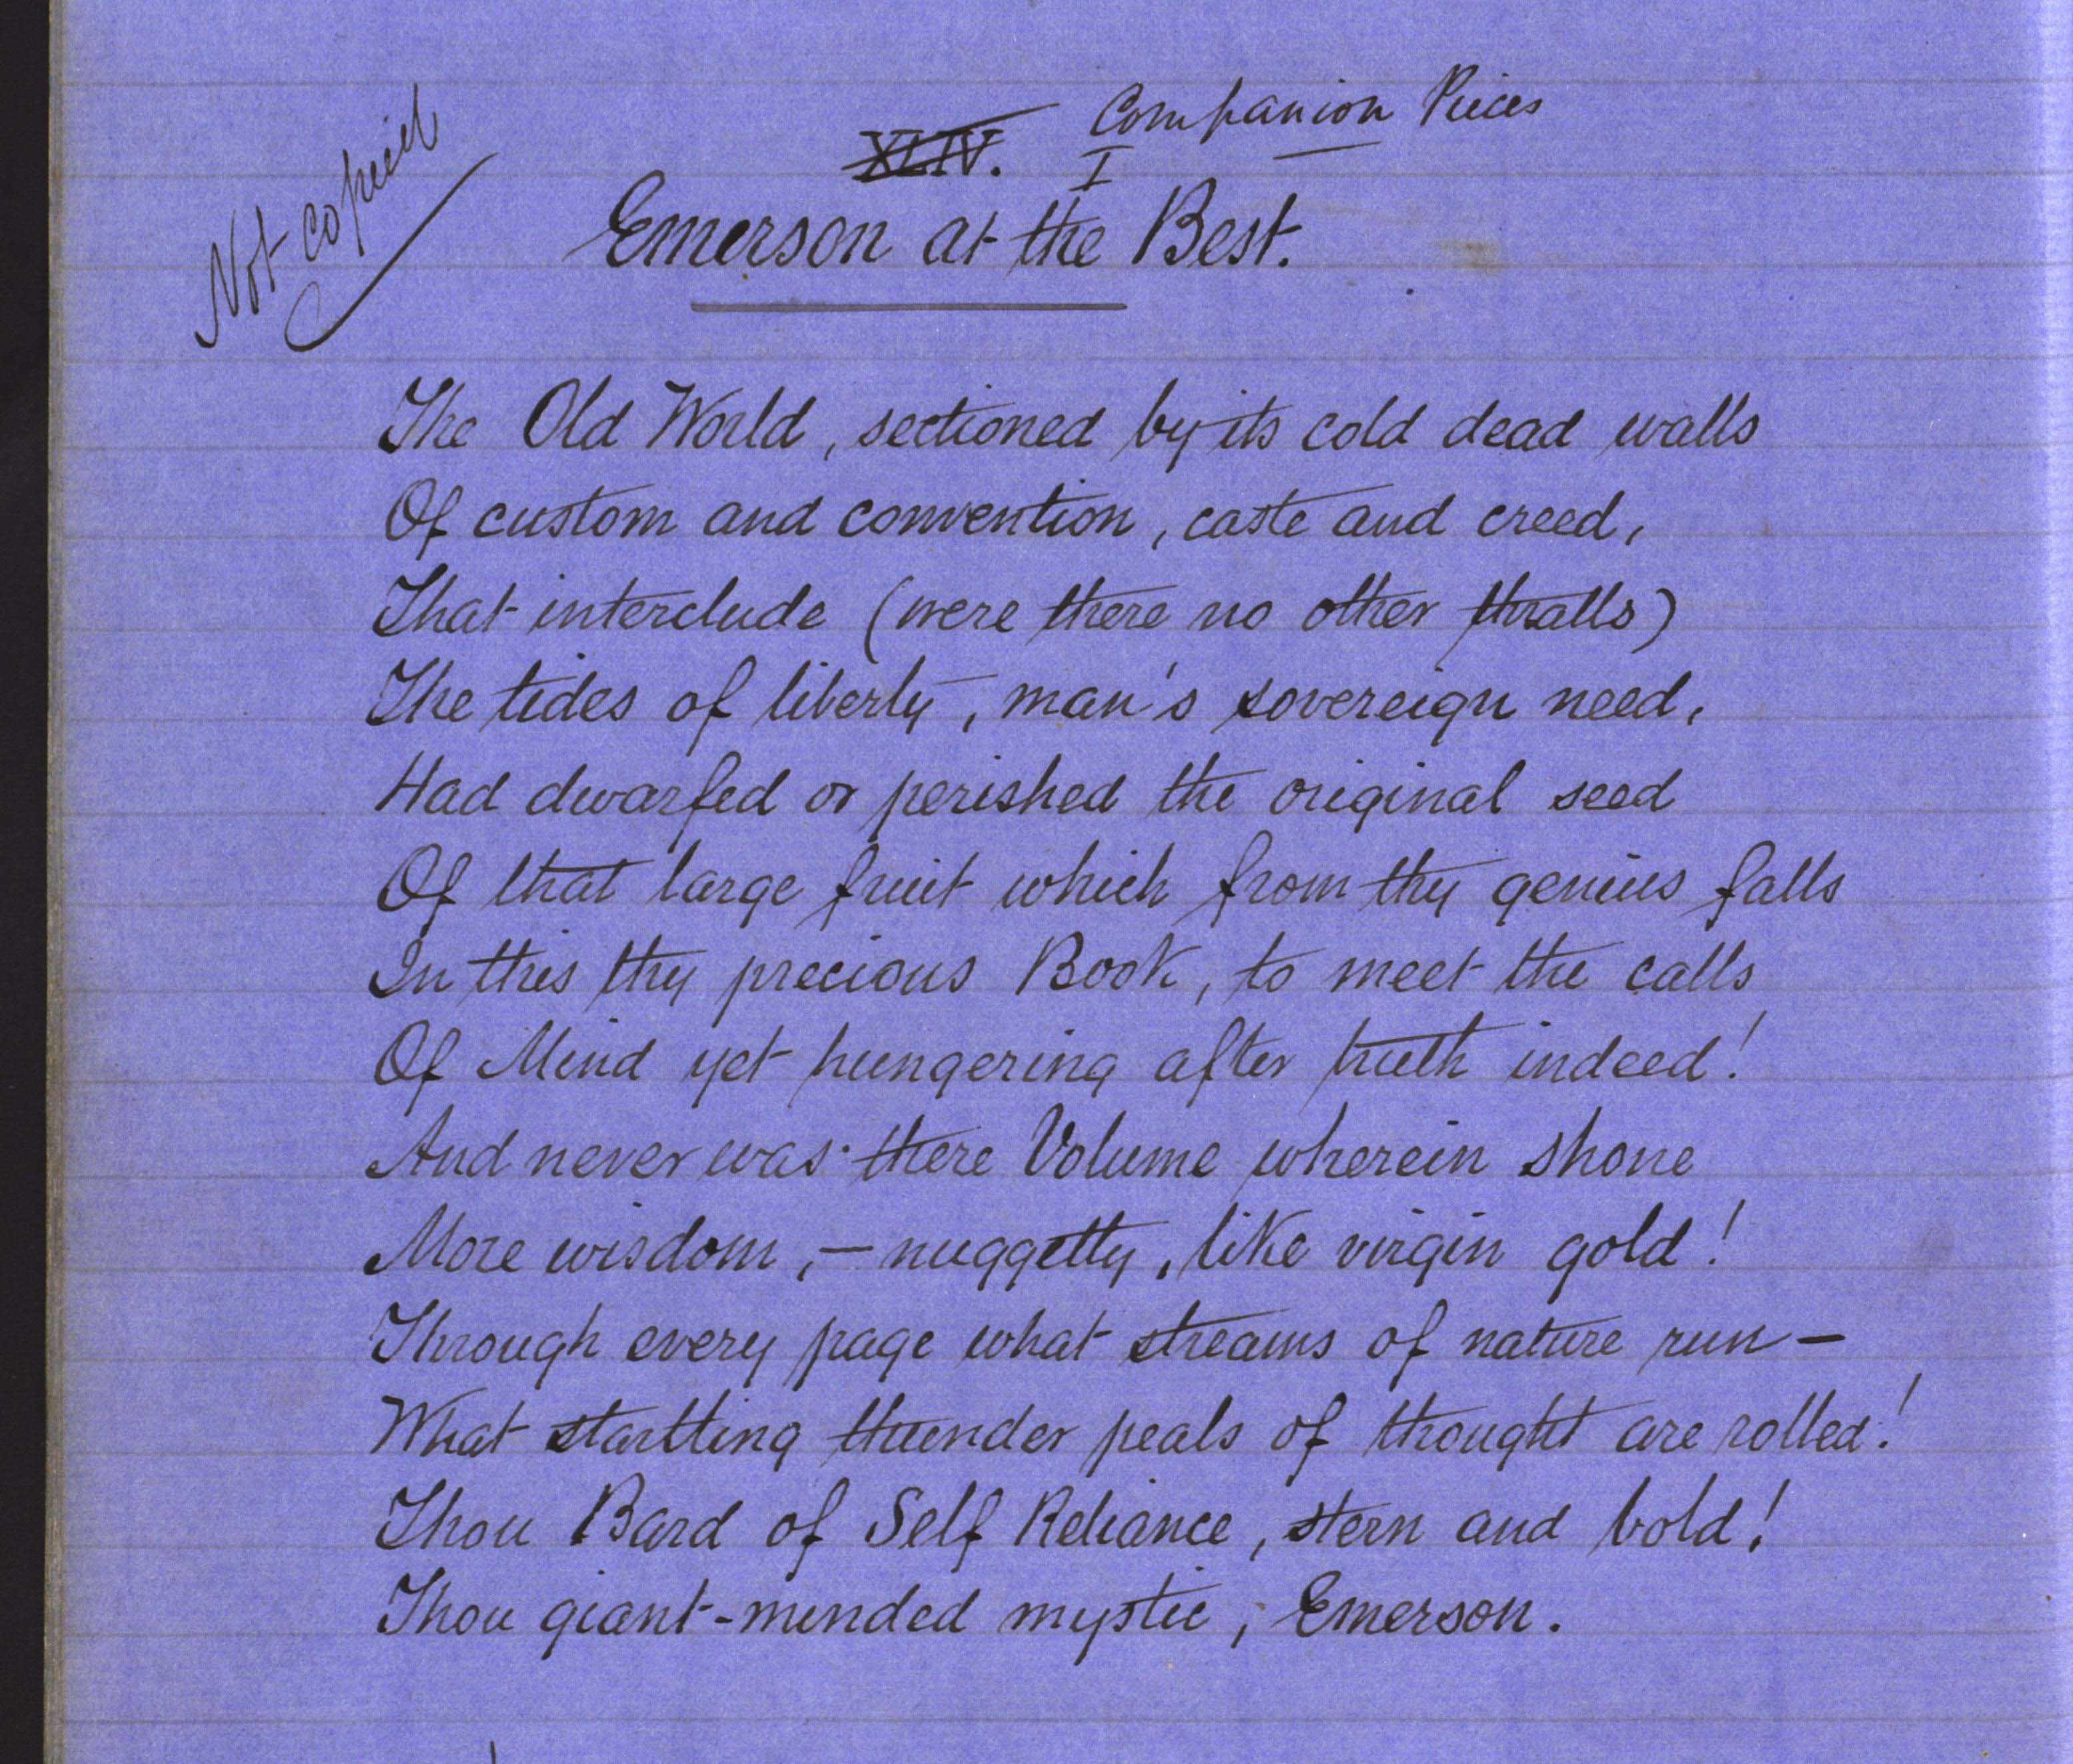 Companion Pieces
XLIV. I
Not copied
Emerson at the Best.
The Old World, sectioned by its cold dead walls
Of custom and convention, caste and creed,
That interclude (were there no other thralls)
The tides of liberty, man's sovereign need,
Had dwarfed or perished the original seed
Of that large fruit which from thy genius falls
In this thy precious Book, to meet the calls
Of Mind yet hungering after truth indeed!
And never was there Volume wherein shone
More wisdom, — nuggetty, like virgin gold!
Through every page what streams of nature run —
What startling thunder peals of thought are rolled!
Thou Bard of Self Reliance, stern and bold!
Thou giant-minded mystic, Emerson.